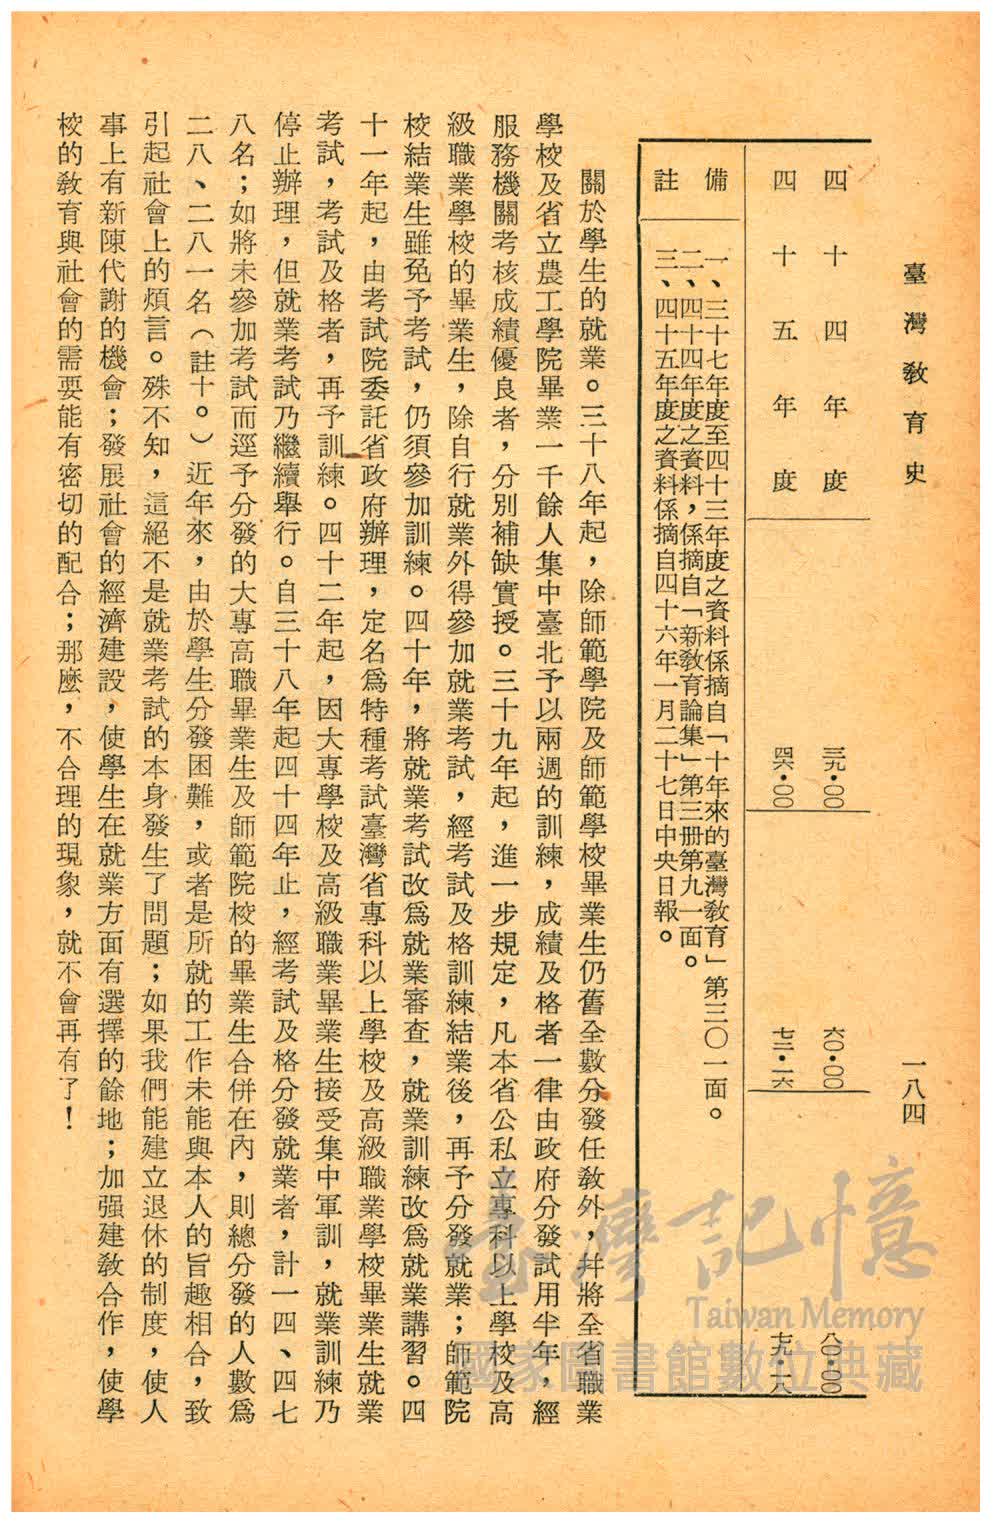 臺灣教育史
一八四
四十四年度 三九・〇〇 六〇・〇〇 八〇・〇〇
四十五年度 四六・〇〇 七二・二六 七九・一八
備註
一、三十七年度至四十三年度之資料係摘自「十年來的臺灣教育」第三〇一面。
二、四十四年度之資料，係摘自「新教育論集」第三册第九一面。
三、四十五年度之資料係摘自四十六年一月二十七日中央日報。
關於學生的就業。三十八年起，除師範學院及師範學校畢業生仍舊全數分發任教外，幷將全省職業
學校及省立農工學院畢業一千餘人集中臺北予以兩週的訓練，成績及格者一律由政府分發試用半年，經
服務機關考核成績優良者，分別補缺實授。三十九年起，進一步規定，凡本省公私立專科以上學校及高
級職業學校的畢業生，除自行就業外得參加就業考試，經考試及格訓練結業後，再予分發就業；師範院
校結業生雖免予考試，仍須參加訓練。四十年，將就業考試改爲就業審查，就業訓練改爲就業講習。四
十一年起，由考試院委託省政府辦理，定名爲特種考試臺灣省專科以上學校及高級職業學校畢業生就業
考試，考試及格者，再予訓練。四十二年起，因大專學校及高級職業畢業生接受集中軍訓，就業訓練乃
停止辦理，但就業考試乃繼續舉行。自三十八年起四十四年止，經考試及格分發就業者，計一四、四七
八名；如將未參加考試而逕予分發的大專高職畢業生及師範院校的畢業生合併在內，則總分發的人數爲
二八、二八一名（註十。）近年來，由於學生分發困難，或者是所就的工作未能與本人的旨趣相合，致
引起社會上的煩言。殊不知，這絕不是就業考試的本身發生了問題；如果我們能建立退休的制度，使人
事上有新陳代謝的機會；發展社會的經濟建設，使學生在就業方面有選擇的餘地；加强建教合作，使學
校的教育與社會的需要能有密切的配合；那麼，不合理的現象，就不會再有了！
臺灣記憶
Taiwan Memory
國家圖書館數位典藏